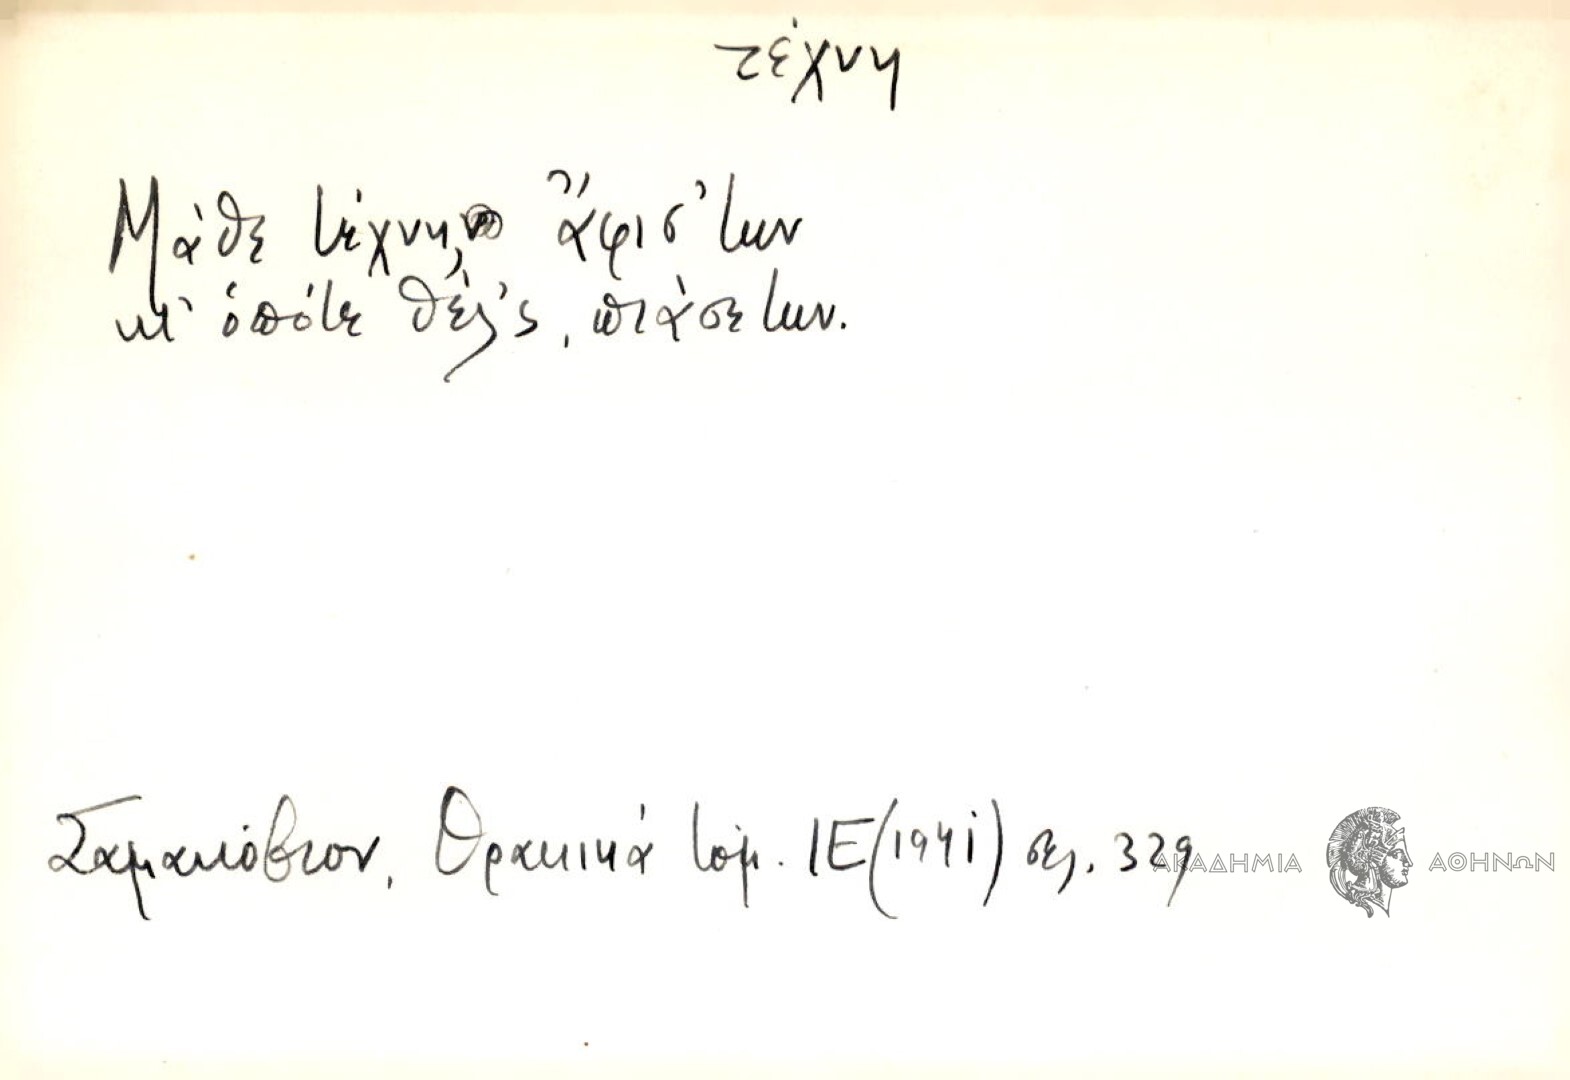 τέχνη
Μάθε τέχνην, ἄφισ' την
κι' ὁπότε θέλ'ς, πιάσε την.
Σαμακόβιον, Θρακικά τόμ. ΙΕ (1941) σελ. 329
ΑΚΑΔΗΜΙΑ ΑΘΗΝΩΝ